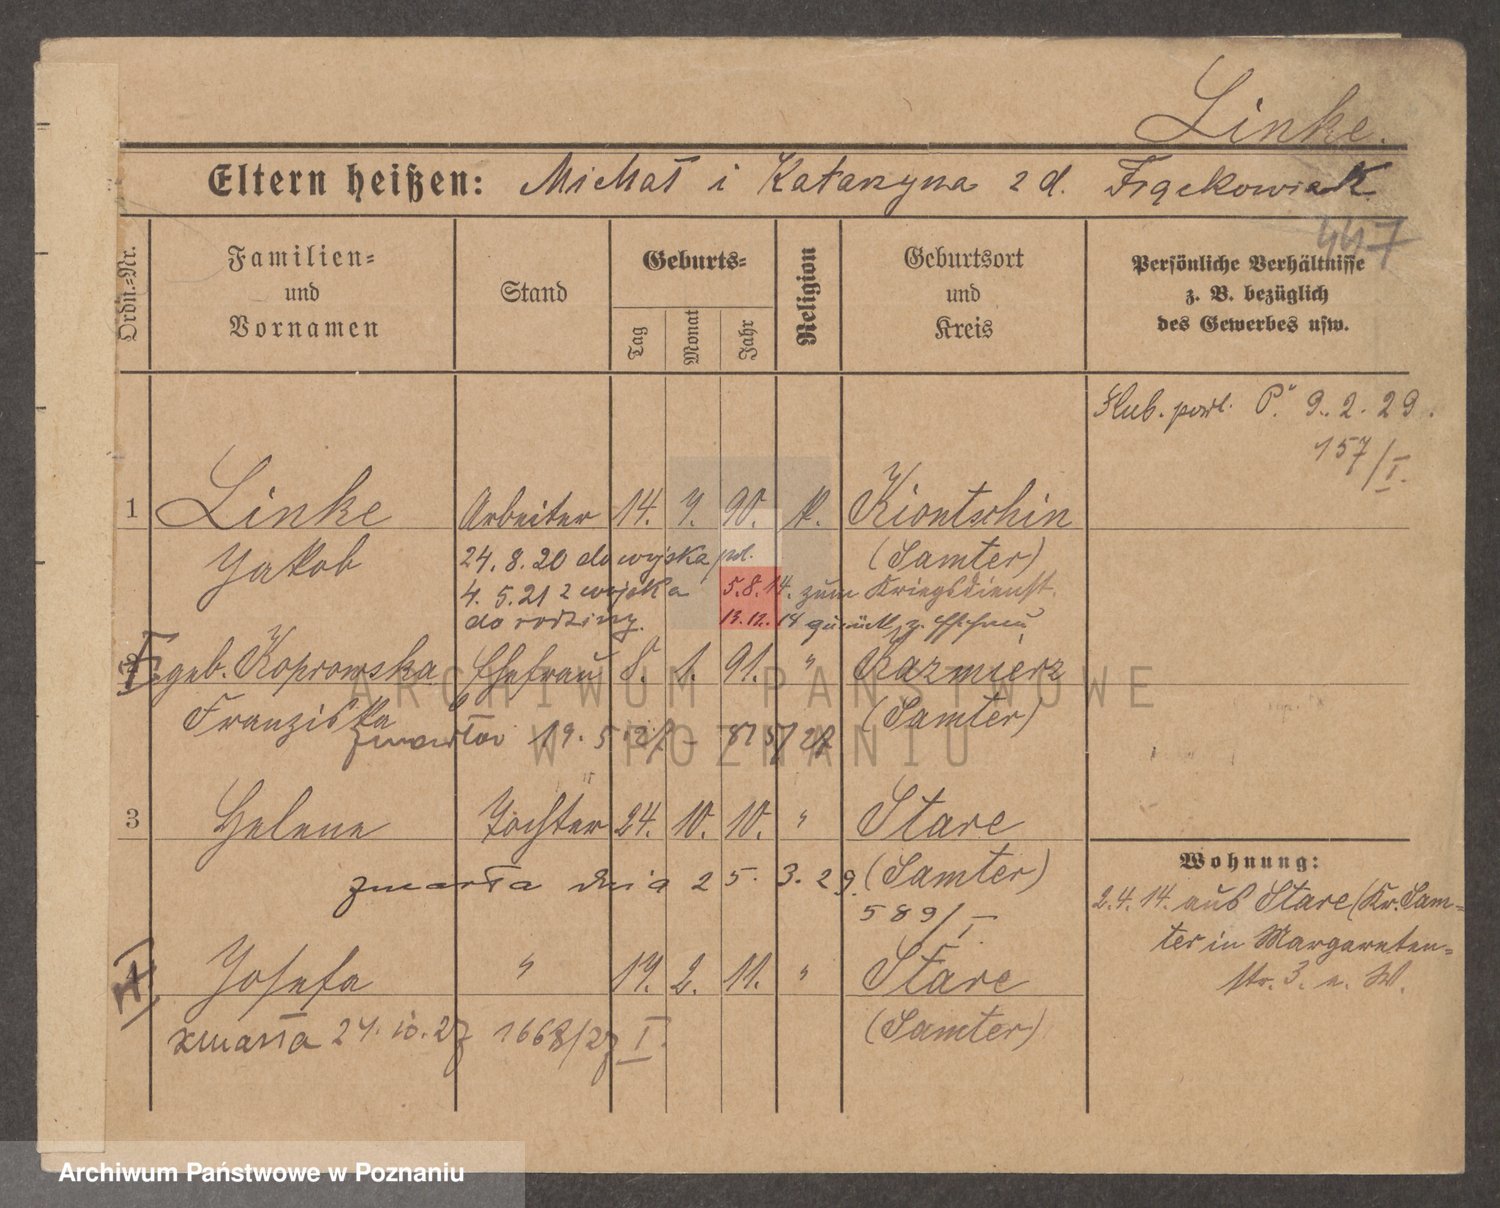 Linke.
Eltern heißen: Michał i Katarzyna z d. Frąckowiak
447
Ordn.=Nr.
Familien=
und
Vornamen
Stand
Geburts=
Tag
Monat
Jahr
Religion
Geburtsort
und
Kreis
Persönliche Verhältnisse
z. B. bezüglich
des Gewerbes usw.
9. 2. 29.
157/I.
1 Linke Arbeiter 14. 7. 90. K. Kiontschin
Jakob
(Samter)
24. 8. 20 do wojska pol.
4. 5. 21 z wojska 5. 8. 14. zum Kriegsdienst.
do rodziny. 13. 12. 18 zurück
geb. Koprowska Ehefrau 8. 1. 91. " Kazmierz
Franziska (Samter)
zmarła 19. 5. 27 - 875/27
3 Helene Tochter 24. 10. 10. " Stare
zmarła dnia 25. 3. 29. (Samter)
589/I
Josefa " 19. 2. 11. " Stare
zmarła 24. 10. 27 1668/27 I (Samter)
Wohnung:
2. 4. 14. aus Stare (Kr. Sam-
ter in Margareten-
str. 3. a. W.
ARCHIWUM PAŃSTWOWE
W POZNANIU
Archiwum Państwowe w Poznaniu